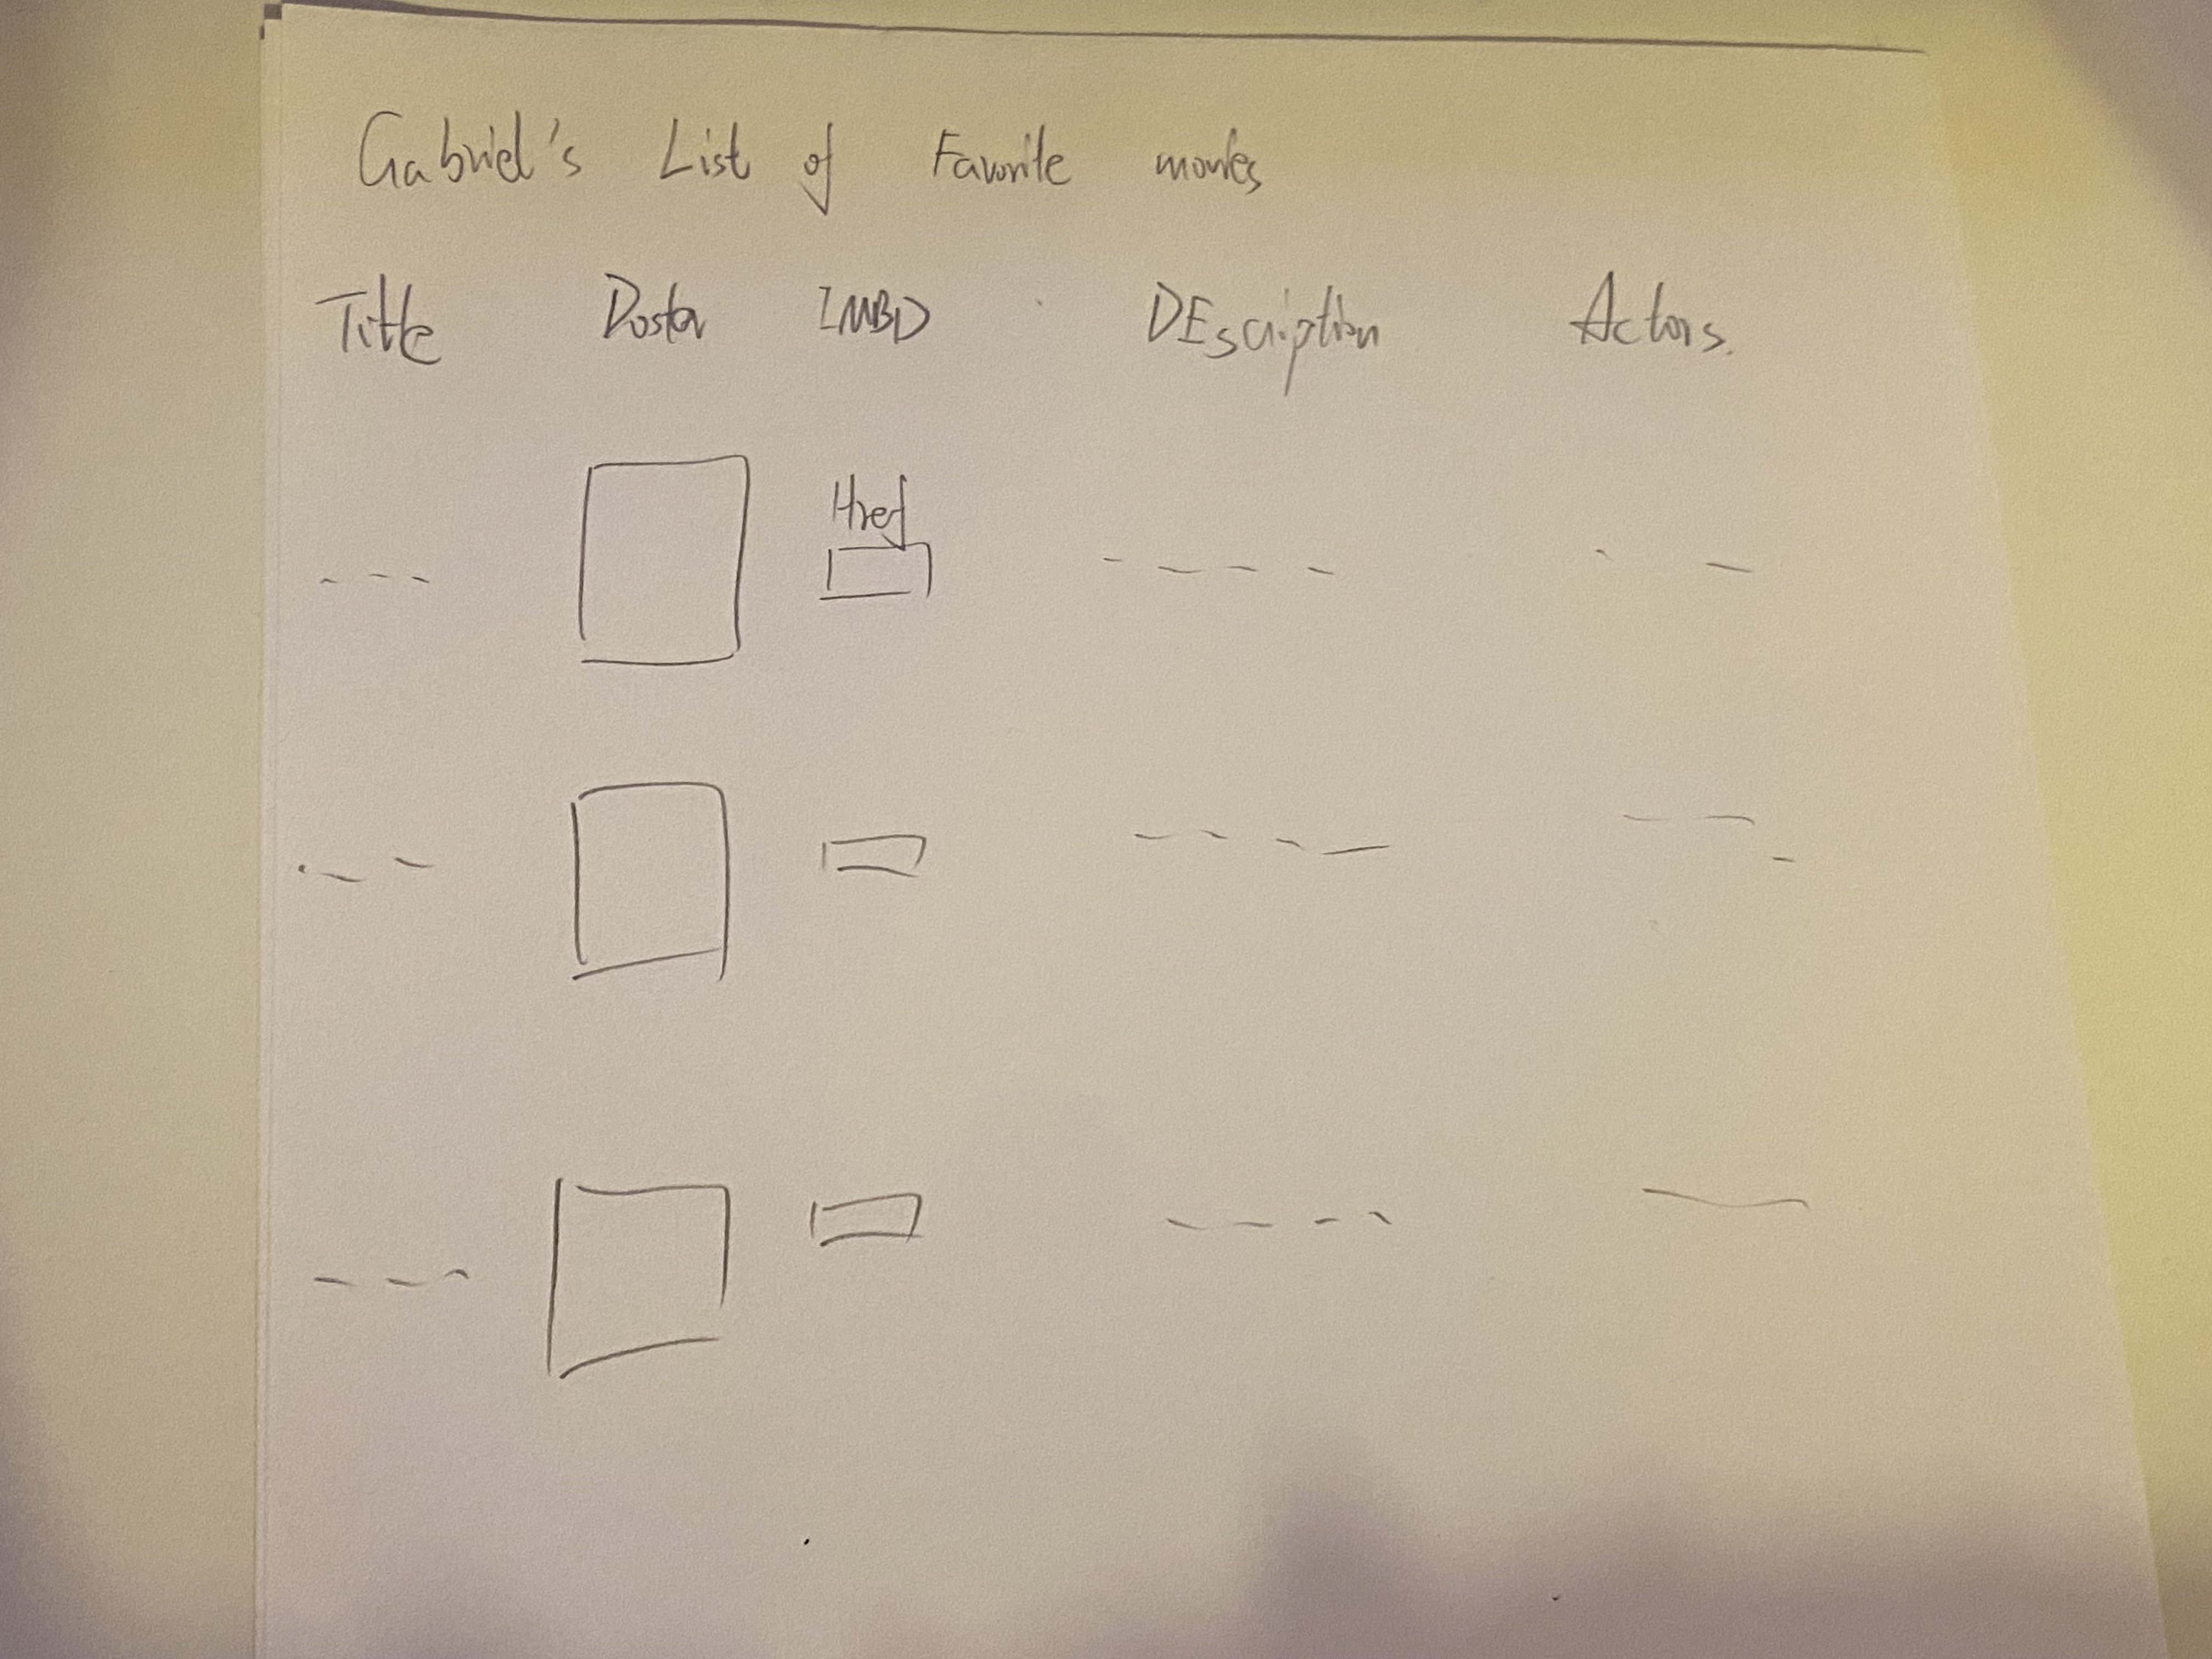 Gabriel's List of Favorite movies
Title Poster IMBD DEscription Actors.
Href